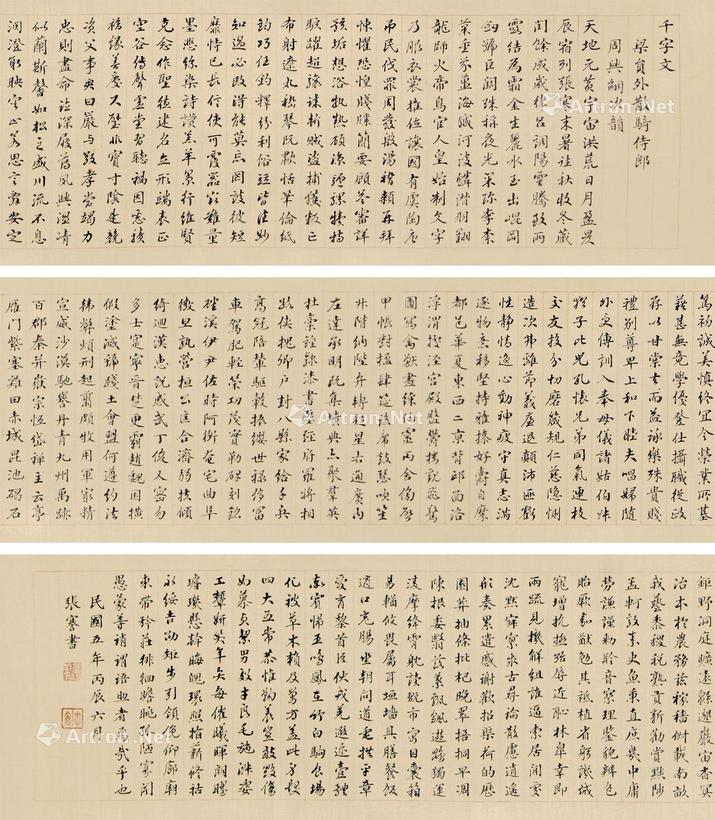 千字文
梁員外散騎侍郎
周興嗣次韻
天地元黃宇宙洪荒日月盈昃
辰宿列張寒來暑往秋收冬藏
閏餘成歲律呂調陽雲騰致雨
露結為霜金生麗水玉出崑岡
劍號巨闕珠稱夜光果珍李柰
菜重芥薑海鹹河淡鱗潛羽翔
龍師火帝鳥官人皇始制文字
乃服衣裳推位讓國有虞陶唐
弔民伐罪周發殷湯稽顙再拜
悚懼恐惶牋牒簡要顧答審詳
骸垢想浴執熱願涼驢騾犢特
駭躍超驤誅斬賊盜捕獲叛亡
布射遼丸嵇琴阮嘯恬筆倫紙
鈞巧任釣釋紛利俗並皆佳妙
知過必改得能莫忘罔談彼短
靡恃己長信使可覆器欲難量
墨悲絲染詩讚羔羊景行維賢
克念作聖德建名立形端表正
空谷傳聲虛堂習聽禍因惡積
福緣善慶尺璧非寶寸陰是競
資父事君曰嚴與敬孝當竭力
忠則盡命臨深履薄夙興溫凊
似蘭斯馨如松之盛川流不息
淵澄取映容止若思言辭安定
篤初誠美慎終宜令榮業所基
藉甚無竟學優登仕攝職從政
存以甘棠去而益詠樂殊貴賤
禮別尊卑上和下睦夫唱婦隨
外受傅訓入奉母儀諸姑伯叔
猶子比兒孔懷兄弟同氣連枝
交友投分切磨箴規仁慈隱惻
造次弗離節義廉退顛沛匪虧
性靜情逸心動神疲守真志滿
逐物意移堅持雅操好爵自縻
都邑華夏東西二京背邙面洛
浮渭據涇宮殿盤鬱樓觀飛驚
圖寫禽獸畫綵仙靈丙舍傍啟
甲帳對楹肆筵設席鼓瑟吹笙
升階納陛弁轉疑星右通廣內
左達承明既集墳典亦聚群英
杜稾鍾隸漆書壁經府羅將相
路俠槐卿戶封八縣家給千兵
高冠陪輦驅轂振纓世祿侈富
車駕肥輕策功茂實勒碑刻銘
磻溪伊尹佐時阿衡奄宅曲阜
微旦孰營桓公匡合濟弱扶傾
綺迴漢惠說感武丁俊乂密勿
多士寔寧晉楚更霸趙魏困橫
假途滅虢踐土會盟何遵約法
韓弊煩刑起翦頗牧用軍最精
宣威沙漠馳譽丹青九州禹跡
百郡秦并嶽宗恆岱禪主云亭
雁門紫塞雞田赤城昆池碣石
鉅野洞庭曠遠綿邈巖岫杳冥
治本於農務茲稼穡俶載南畝
我藝黍稷稅熟貢新勸賞黜陟
孟軻敦素史魚秉直庶幾中庸
勞謙謹敕聆音察理鑑貌辨色
貽厥嘉猷勉其祗植省躬譏誡
寵增抗極殆辱近恥林皋幸即
兩疏見機解組誰逼索居閒處
沈默寂寥求古尋論散慮逍遙
欣奏累遣慼謝歡招渠荷的歷
園莽抽條枇杷晚翠梧桐早凋
陳根委翳落葉飄颻遊鵾獨運
凌摩絳霄耽讀翫市寓目囊箱
易輶攸畏屬耳垣牆具膳餐飯
適口充腸坐朝問道垂拱平章
愛育黎首臣伏戎羌遐邇壹體
率賓歸王鳴鳳在竹白駒食場
化被草木賴及萬方蓋此身髮
四大五常恭惟鞠養豈敢毀傷
女慕貞絜男效才良毛施淑姿
工顰妍笑年矢每催曦暉朗曜
璇璣懸斡晦魄環照指薪修祜
永綏吉劭矩步引領俯仰廊廟
束帶矜莊徘徊瞻眺孤陋寡聞
愚蒙等誚謂語助者焉哉乎也
民國五年丙辰六月
張謇書